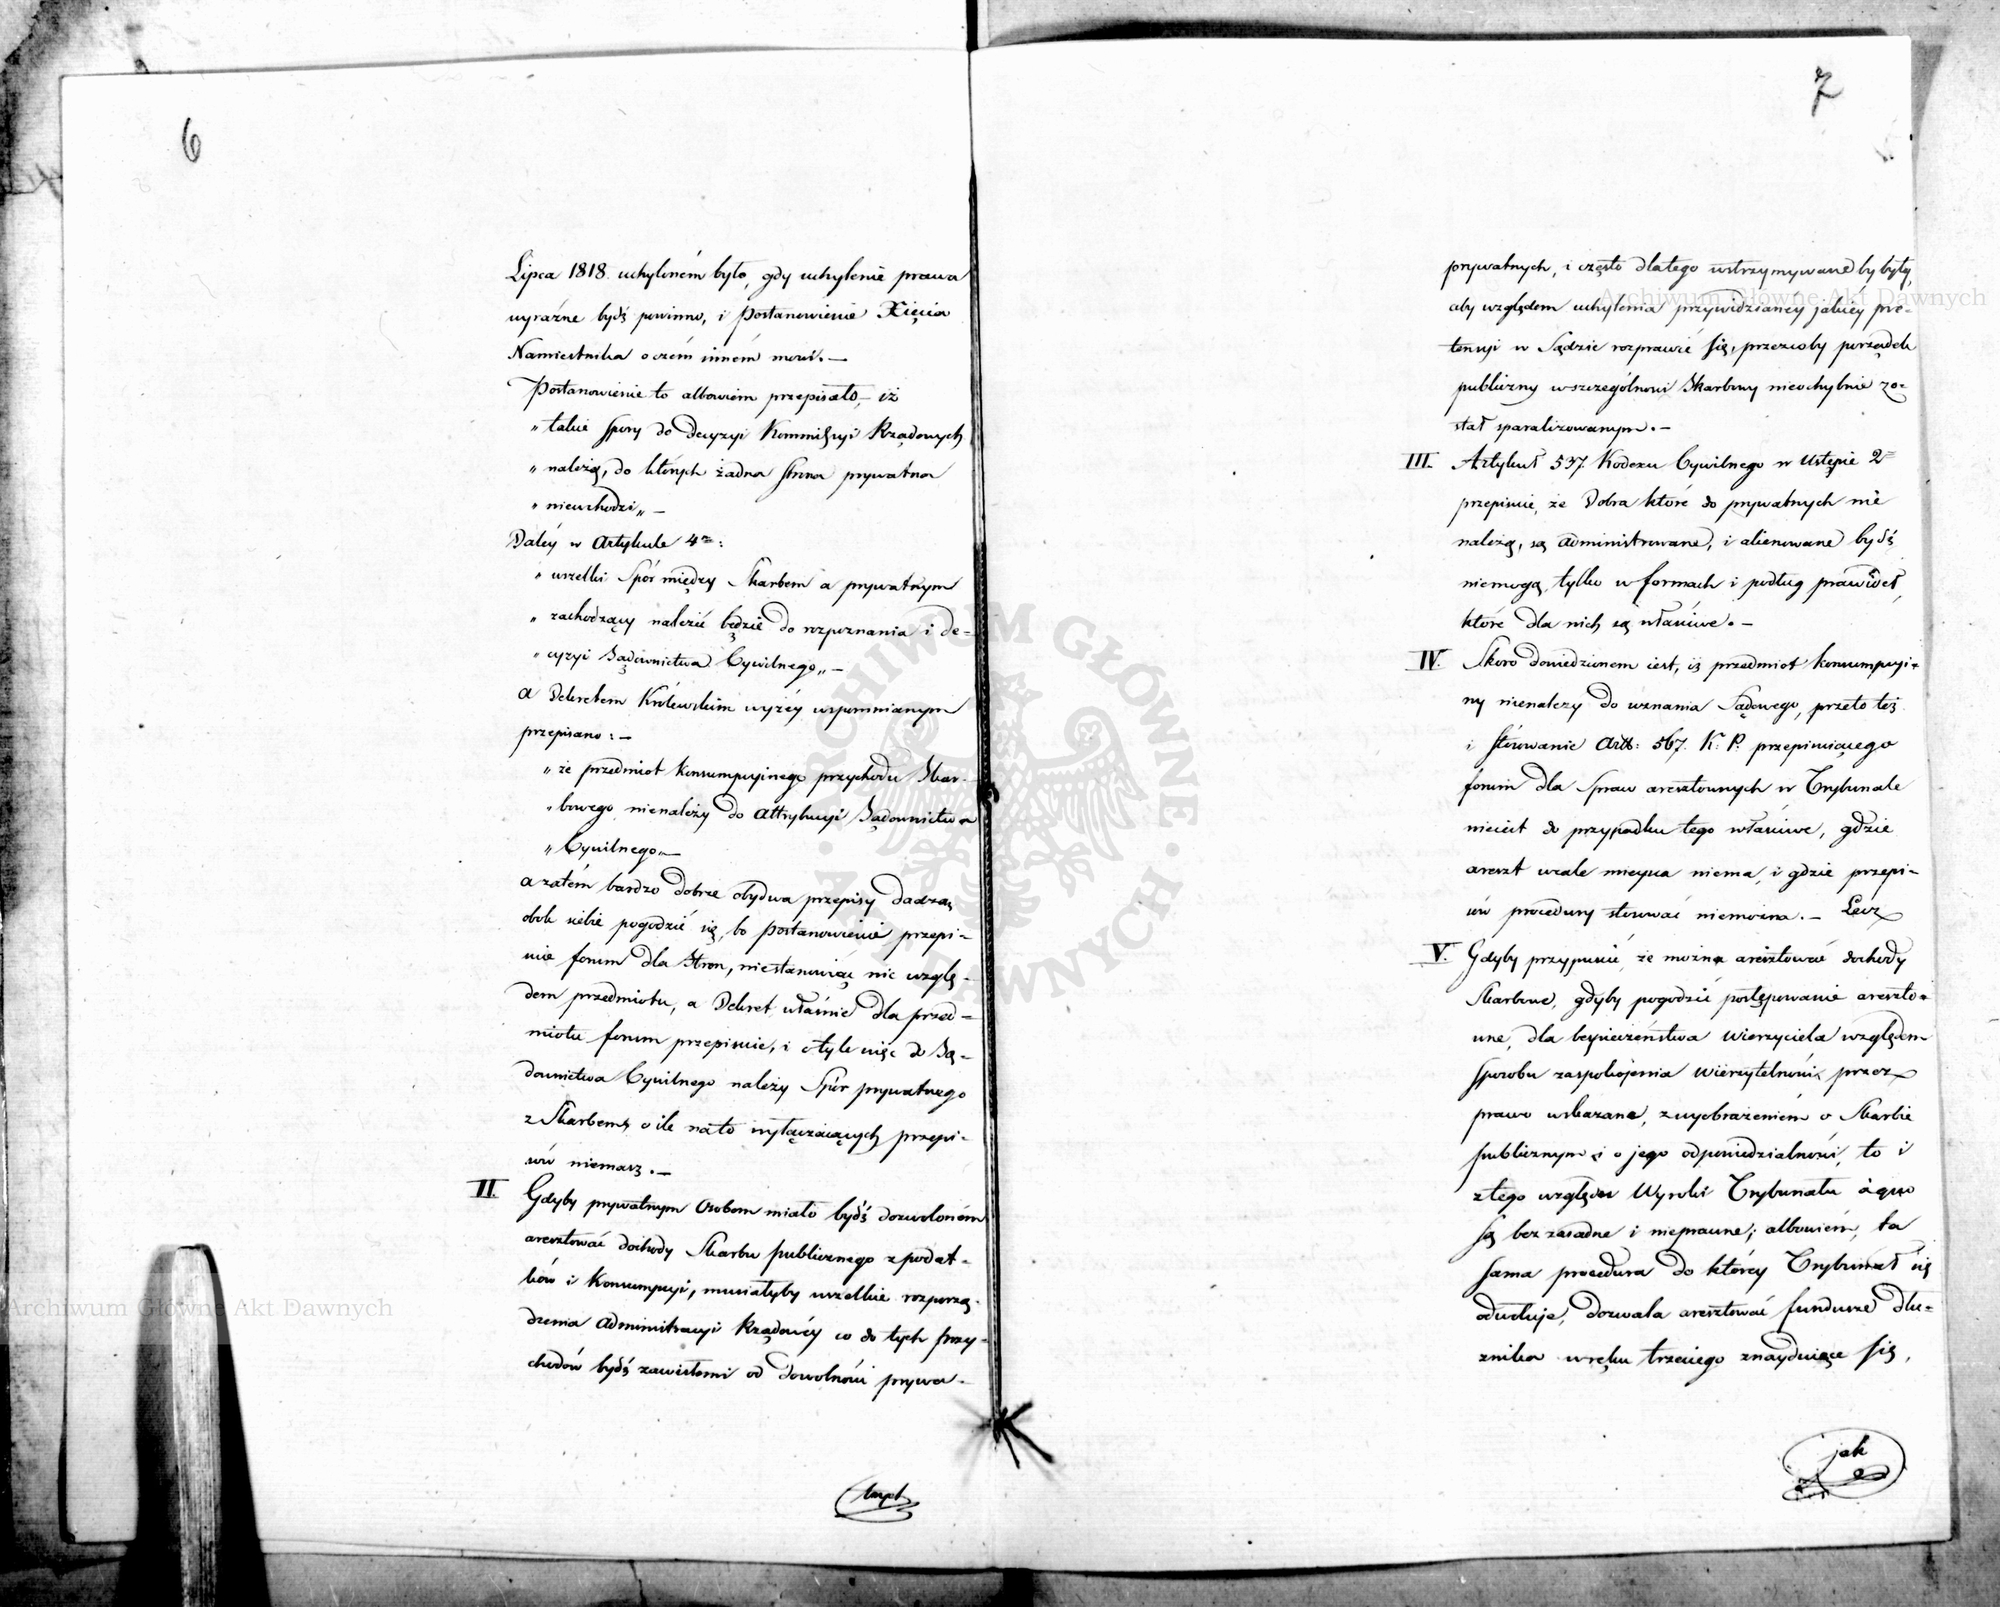 6
Lipca 1818 uchyloném było, gdy uchylenie prawa
wyraźne bydź powinno, i Postanowienie Xięcia
Namiestnika o czém inném mówi. —
Postanowienie to albowiem przepisało, — iż
„ takie spory do decyzyi Kommissyi Rządowych
„ należą, do których żadna strona prywatna
„ niewchodzi „ —
Daléy w Artykule 4m:
„ wszelki Spór między Skarbem a prywatnym
„ zachodzący należeć będzie do rozpoznania i de-
„ cyzyi Sądownictwa Cywilnego „ —
a Dekretem Królewskim wyżéy wspomnianym
przepisano: —
„ że przedmiot konsumpcyinego przychodu Skar-
„ bowego nienależy do Attrybucyi Sądownictwa
„ Cywilnego „ —
a zatém bardzo dobrze obydwa przepisy dadzą
obok siebie pogodzić się, bo Postanowienie przepi-
suie forum dla Stron, niestanowiąc nic wzglę-
dem przedmiotu, a Dekret właśnie dla przed-
miotu forum przepisuie, i o tyle więc do Są-
downictwa Cywilnego należy Spór prywatnego
z Skarbem, o ile na to wyłączaiących przepi-
sów niemasz. —
II. Gdyby prywatnym Osobom miało bydź dozwoloném
aresztować dochody Skarbu publicznego z podat-
ków i Konsumpcyi, musiałyby wszelkie rozporzą-
dzenia Administracyi Rządowéy co do tych przy-
chodów bydź zawisłemi od dowolności prywa-
tnych
7
prywatnych, i często dlatego wstrzymywane by były,
aby względem uchylenia przywidzianéy jakiéy pre-
tensyi w Sądzie rozprawić się, przezcoby porządek
publiczny wszczególności Skarbowy nieochybnie zo-
stał sparaliżowanym. —
III. Artykuł 537. Kodexu Cywilnego w Ustępie 2m
przepisuie, że Dobra które do prywatnych nie
należą, są administrowane, i alienowane bydź
niemogą, tylko w formach i podług prawideł,
które dla nich są właściwe. —
IV. Skoro dowiedzionem iest, iż przedmiot konsumpcyi-
ny nienależy do uznania Sądowego, przeto też
i stosowanie Artt: 567. K. P. przepisuiącego
forum dla Spraw aresztownych w Trybunale
nieiest do przypadku tego właściwe, gdzie
areszt wcale mieysca niema, i gdzie przepi-
sów procedury stosować niemożna. — Lecz
V. Gdyby przypuścić, że można aresztować dochody
Skarbowe, gdyby pogodzić postępowanie areszto-
wne, dla bezpieczeństwa Wierzyciela względem
sposobu zaspokojenia wierzytelności przez
prawo wskazane, z wyobrażeniem o Skarbie
publicznym i o jego odpowiedzialności, to i
z tego względu Wyroki Trybunału à quo
są bezzasadne i nieprawne; albowiem, ta
sama procedura do któréy Trybunał się
odwołuje, dozwala aresztować fundusze dłu-
żnika w ręku trzeciego znayduiące się,
jak
Archiwum Główne Akt Dawnych
Archiwum Główne Akt Dawnych
ARCHIWUM GŁÓWNE AKT DAWNYCH